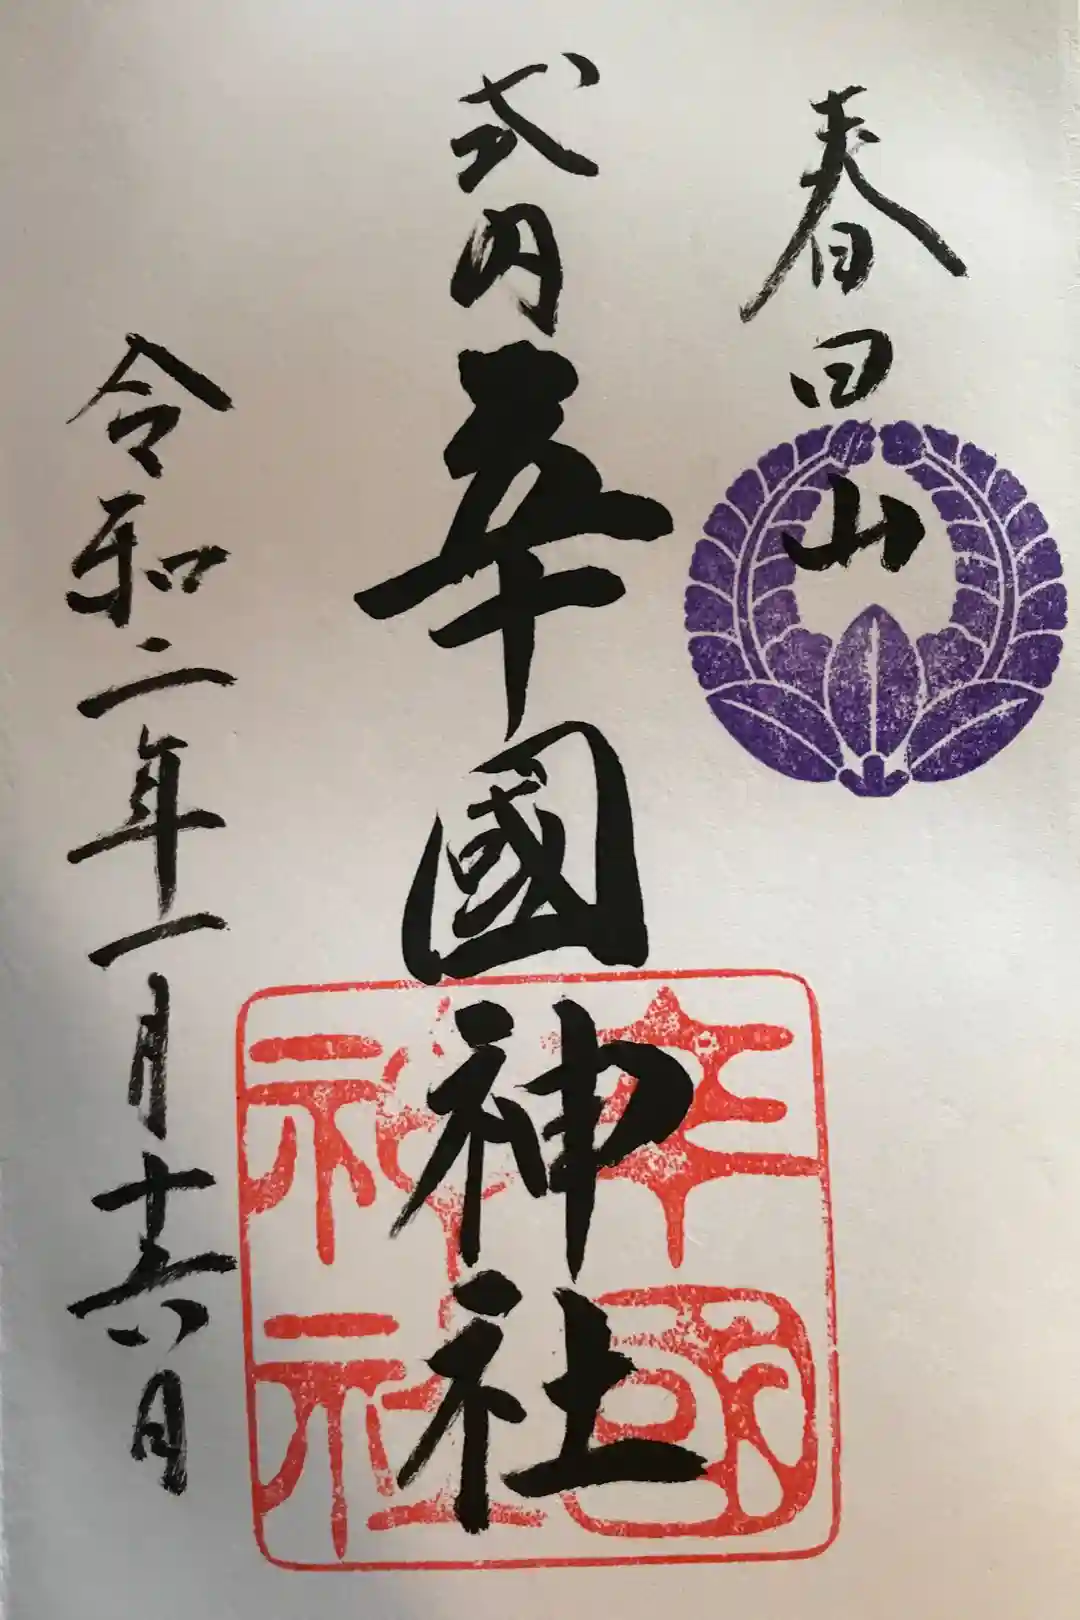 春日山
式内辛國神社
令和二年一月十六日
辛國
神社